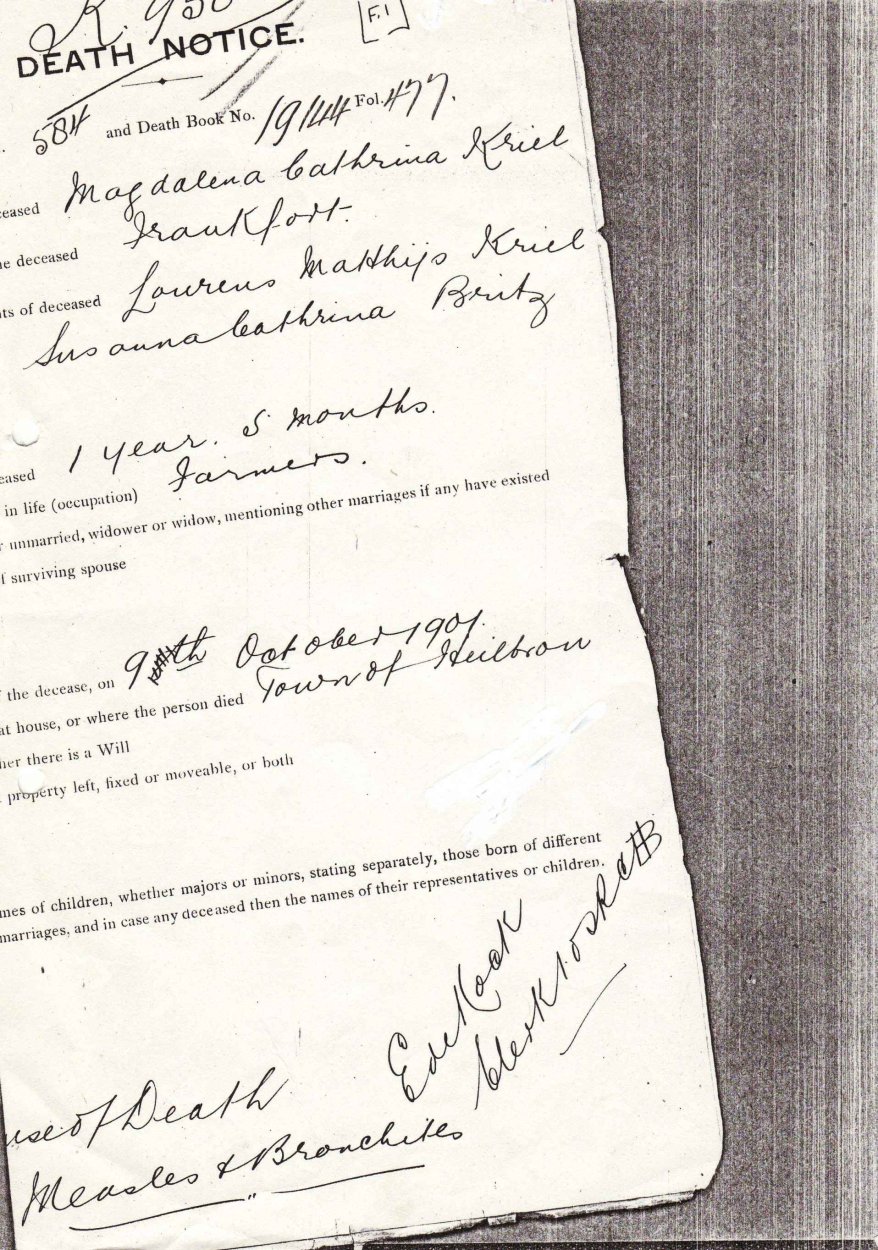 K. 950
F.1
DEATH NOTICE.
584 and Death Book No. 19144 Fol. 477.
ceased Magdalena Cathrina Kriel
e deceased Frankfort.
ts of deceased Lourens Matthijs Kriel
Susanna Cathrina Britz
eased 1 year. 5 months.
in life (occupation) Farmers.
r unmarried, widower or widow, mentioning other marriages if any have existed
f surviving spouse
f the decease, on 9th October 1901.
at house, or where the person died Town of Heilbron
her there is a Will
property left, fixed or moveable, or both
mes of children, whether majors or minors, stating separately, those born of different
marriages, and in case any deceased then the names of their representatives or children.
E de Kock
Clerk to
use of Death
Measles & Bronchites